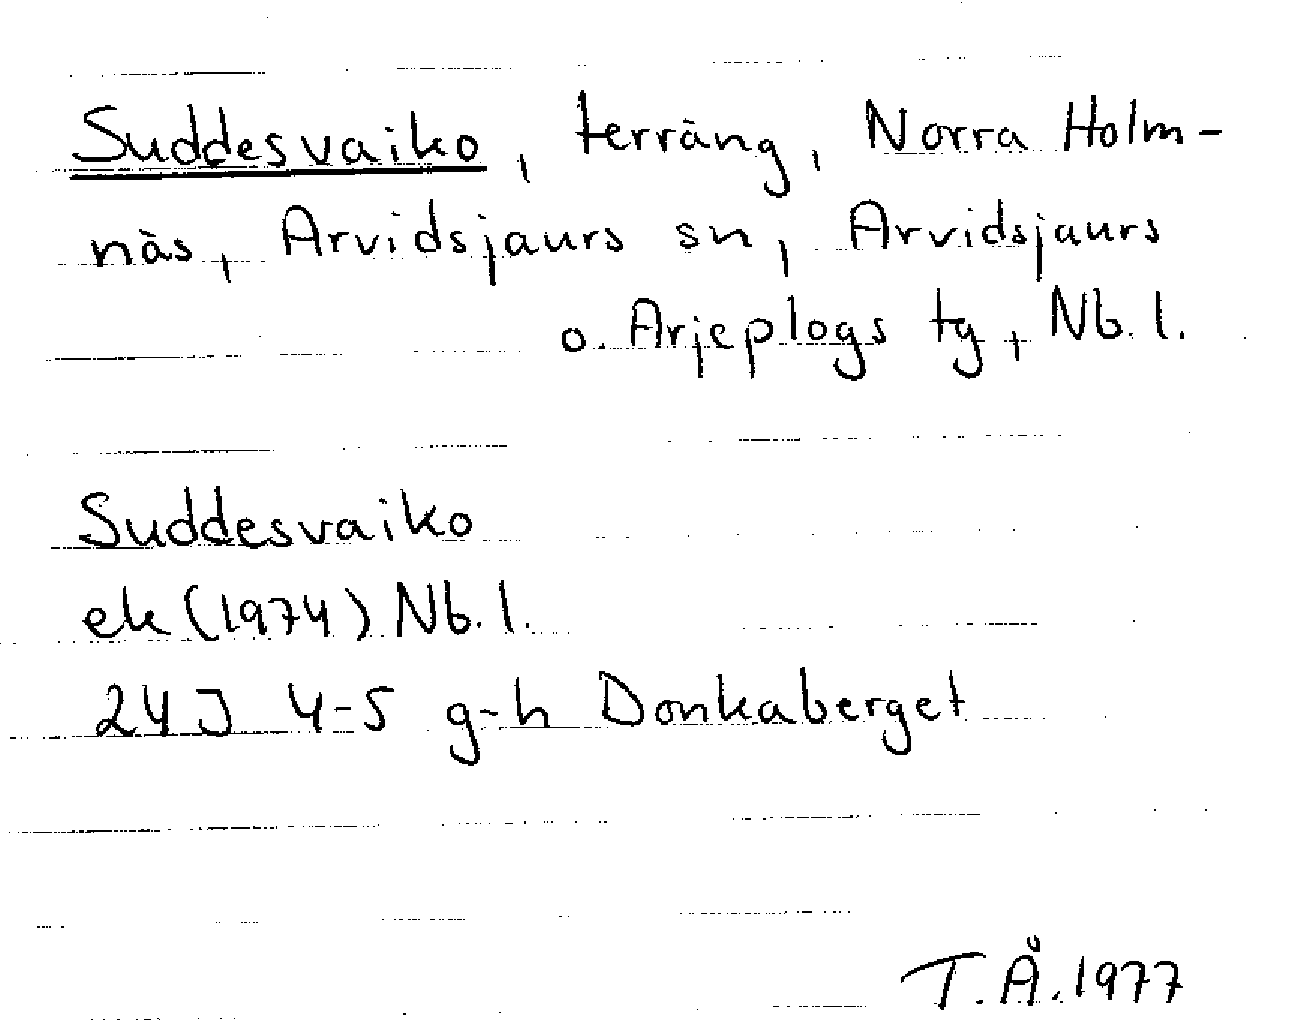 Suddesvaiko, terräng, Norra Holm-
näs, Arvidsjaurs sn, Arvidsjaurs
o. Arjeplogs tg, Nb. l.
Suddesvaiko
ek (1974) Nb. l.
24J 4-5 g-h Donkaberget
T.Å. 1977